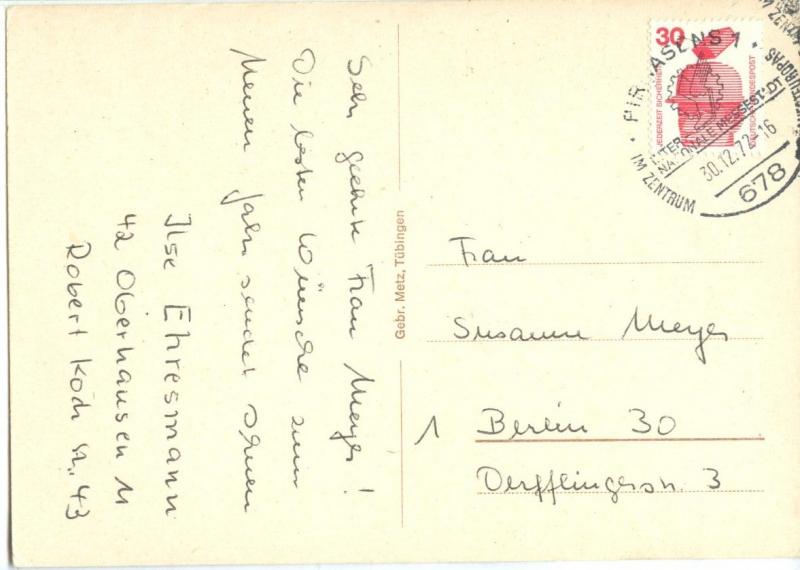 Sehr geehrte Frau Meyer!
Die besten Wünsche zum
Neuen Jahr sendet Ihnen
Ilse Ehresmann
42 Oberhausen 11
Robert Koch str. 43
Gebr. Metz, Tübingen
30
JEDERZEIT SICHERHEIT
DEUTSCHE BUNDESPOST
PIRMASENS 1
INTER-
NATIONALE MESSESTADT
IM ZENTRUM
30.12.72-16
678
Frau
Susanne Meyer
1 Berlin 30
Derfflingerstr. 3